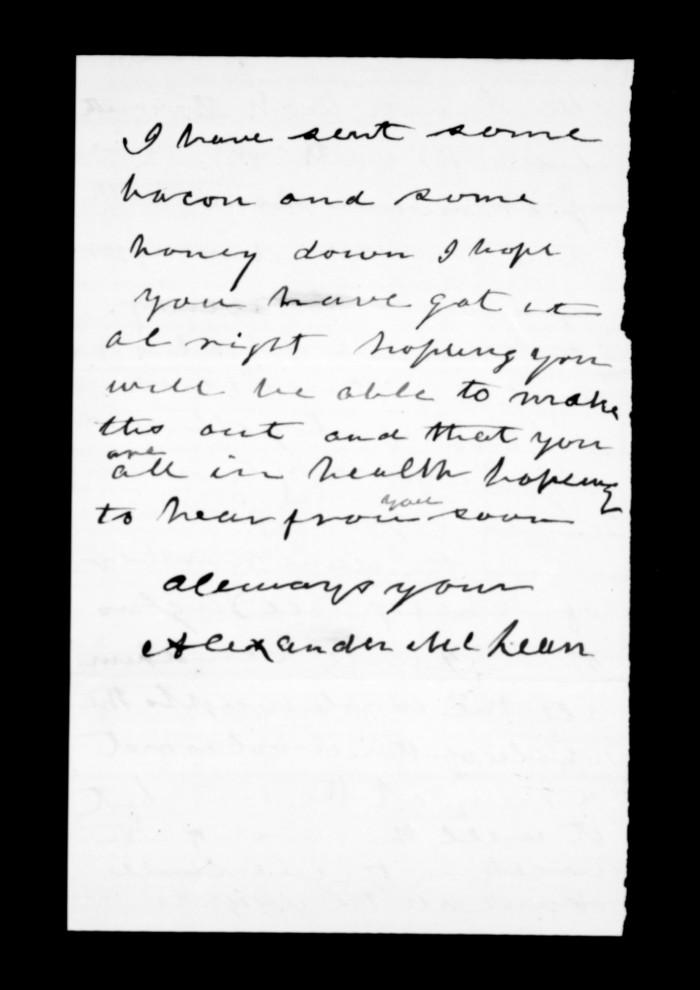 I have sent some
bacon and some
honey down I hope
you have got it
al right hopeing you
will be able to make
this out and that you
are
all in health hopeing
you
to hear from soon
allways your
Alexander McLean